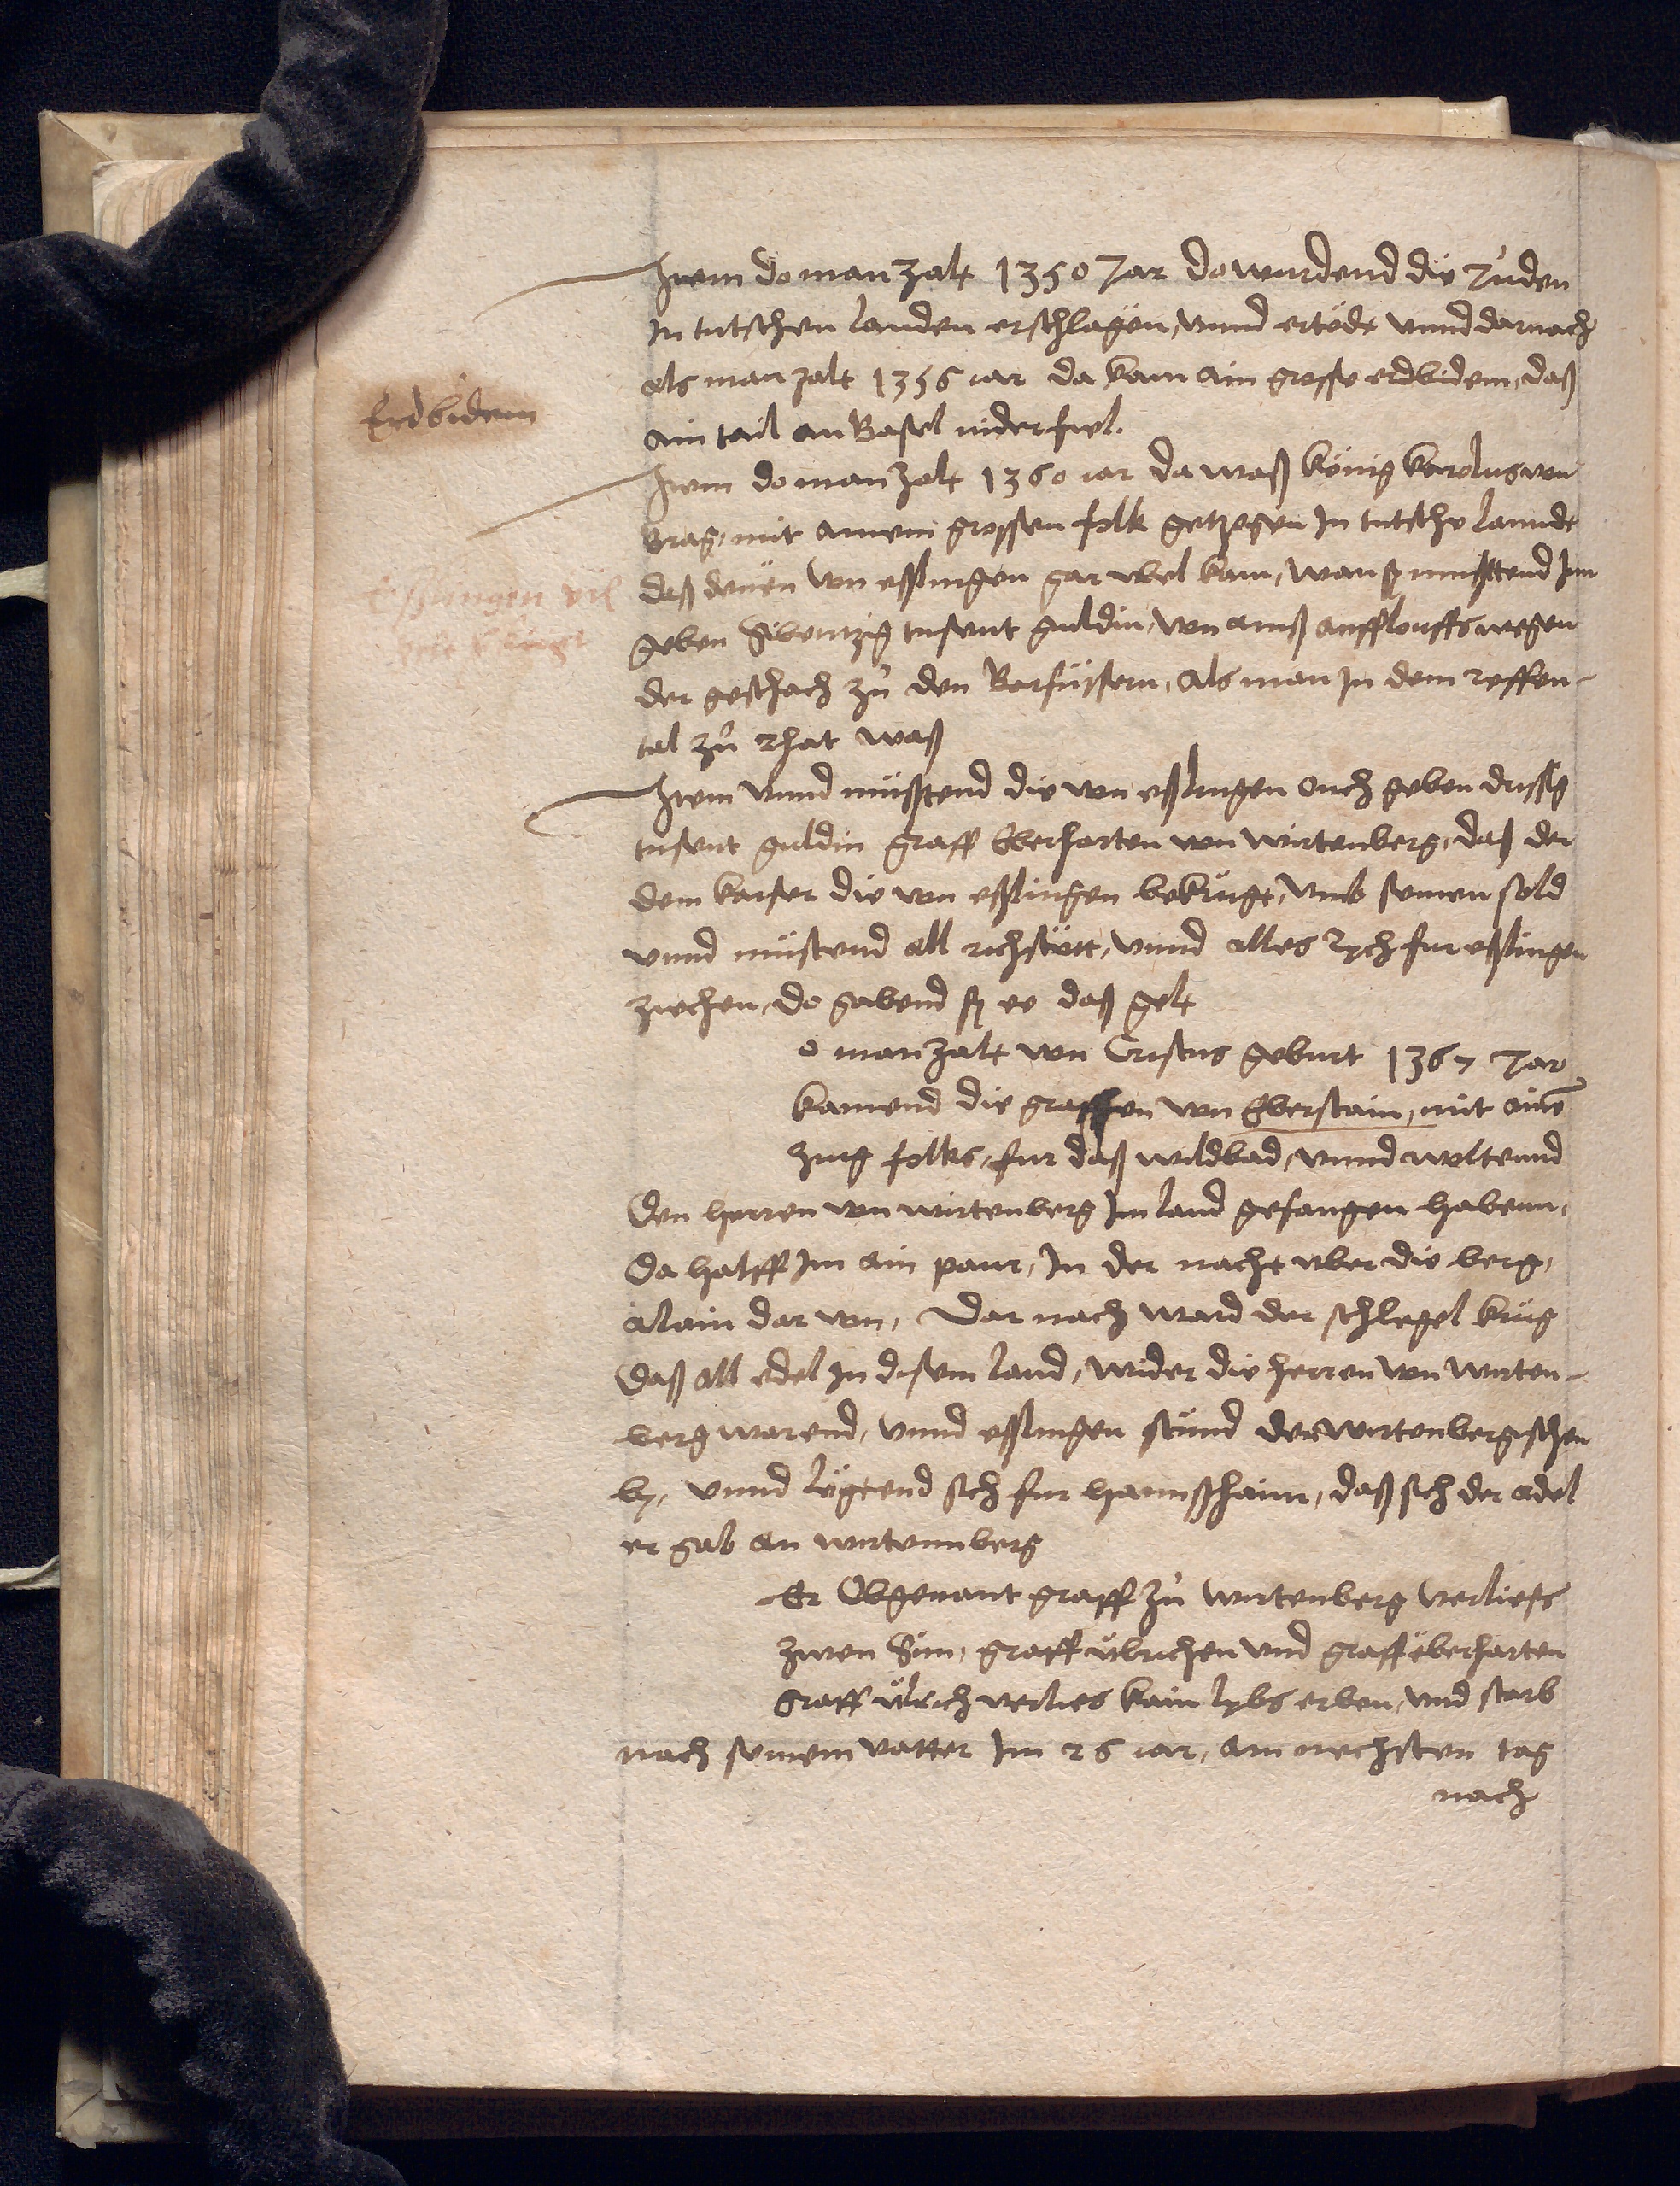 Item do man zalt 1350 Jar do wurdend die Juden
In tutschen landen erschlagen, vnnd ertödt vnnd darnach
als man zalt 1356 iar da kam ain grosse erdbidem, daß
Erdbidem
ain tail an Basel nider fiel.
Item do man zalt 1360 iar da waß könig karolus von
brag, mit ainem grossen folk getzogen In tutsche lannde
deß denen von esslingen gar vbel kam, wan sy musttend Im
Esslingen vil
geben Sibentzig tusent guldin, von ainß aufflouffs wegen
der geschach zů den Barfüssern, als man In dem reffen-
tal zů rhat waß
Item vnnd müsstend die von esslingen ouch geben drissig
tusent guldin graff Eberharten von wirtenberg, daß der
dem kaiser die von esslingen bekriegt, vmb seinen sold
vnnd müstend all richstött, vnnd alles rych fur esslingen
ziechen, do gabend sy ee daß gelt
o man zalt von Cristus geburt 1367 Jar
kamend die graffen von Eberstain, mit aine
zug folks, fur daß wildbad, vnnd woltennd
den herren von wirtenberg Im land gefangen habenn,
da halff Im ain paur, In der nacht vber die berg,
alain dar von, Dar nach ward der schlegel krieg
daß all edel In disem land, wider die herren von wirten-
berg warend, vnnd esslingen stund den wirtenbergischen
by, vnnd legtend sich fur hannßhaim, daß sich der adel
er gab an wirtennberg
Er Obgenant graff zů wirtenberg verliess
zwen Sün, graff ůlrichen vnd graff eberharten
Graff ůlrich verlies kain lybs erben, vnd starb
nach seinem vatter Im 26 iar, am nechsten tag
nach